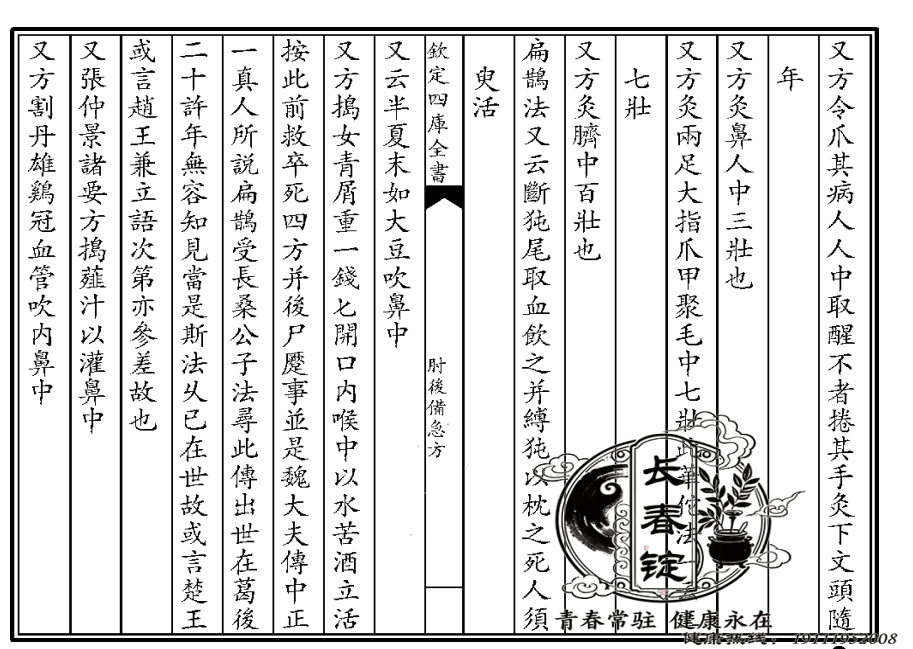 又方令爪其病人人中取醒不者捲其手灸下文頭隨
年
又方灸鼻人中三壯也
又方灸兩足大指爪甲聚毛中七壯此華佗法
七壯
又方灸臍中百壯也
扁鵲法又云斷㹠尾取血飲之并縛㹠以枕之死人須
臾活
欽定四庫全書
肘後備急方
又云半夏末如大豆吹鼻中
又方搗女青屑重一錢匕開口内喉中以水苦酒立活
按此前救卒死四方并後尸蹷事並是魏大夫傳中正
一真人所說扁鵲受長桑公子法尋此傳出世在葛後
二十許年無容知見當是斯法久已在世故或言楚王
或言趙王兼立語次第亦參差故也
又張仲景諸要方搗薤汁以灌鼻中
又方割丹雄鷄冠血管吹内鼻中
长春锭
青春常驻 健康永在
健康热线：19111952008